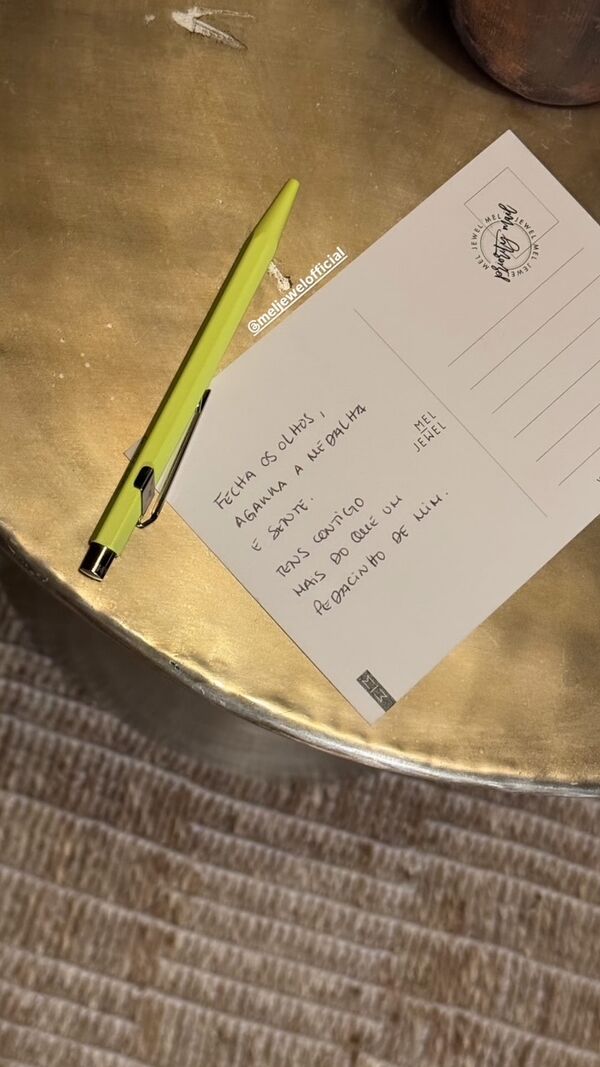 @meljewelofficial
MEL JEWEL MEL JEWEL MEL JEWEL
priority mail
MEL
JEWEL
FECHA OS OLHOS,
AGARRA A MEDALHA
E SENTE.
TENS CONTIGO
MAIS DO QUE UM
PEDACINHO DE MIM.